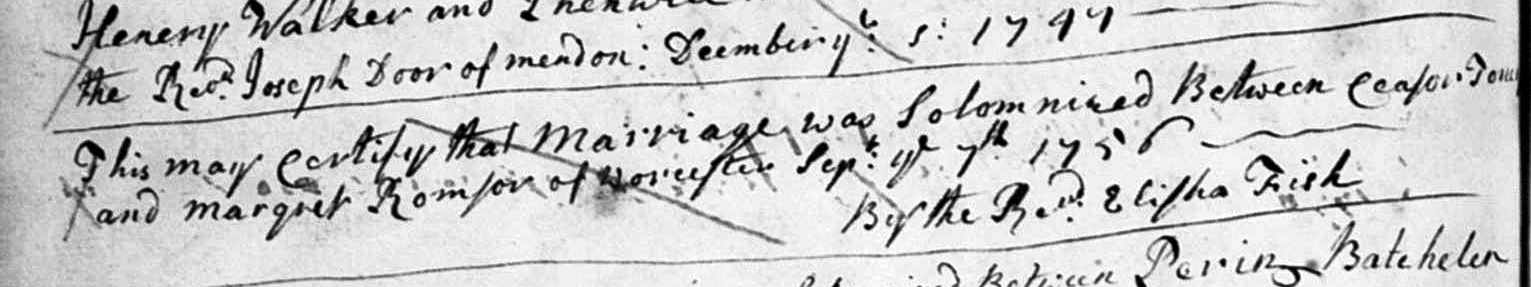 Henery Walker and
the Revd. Joseph Door of mendon: Deember ye: 5: 1747
This may certify that Marriage was Solomnized Between Ceasor
and margret Romsor of worcester Sept: ye 7th 1756
By the Revd. Elisha Fish
Between Perin Batcheler